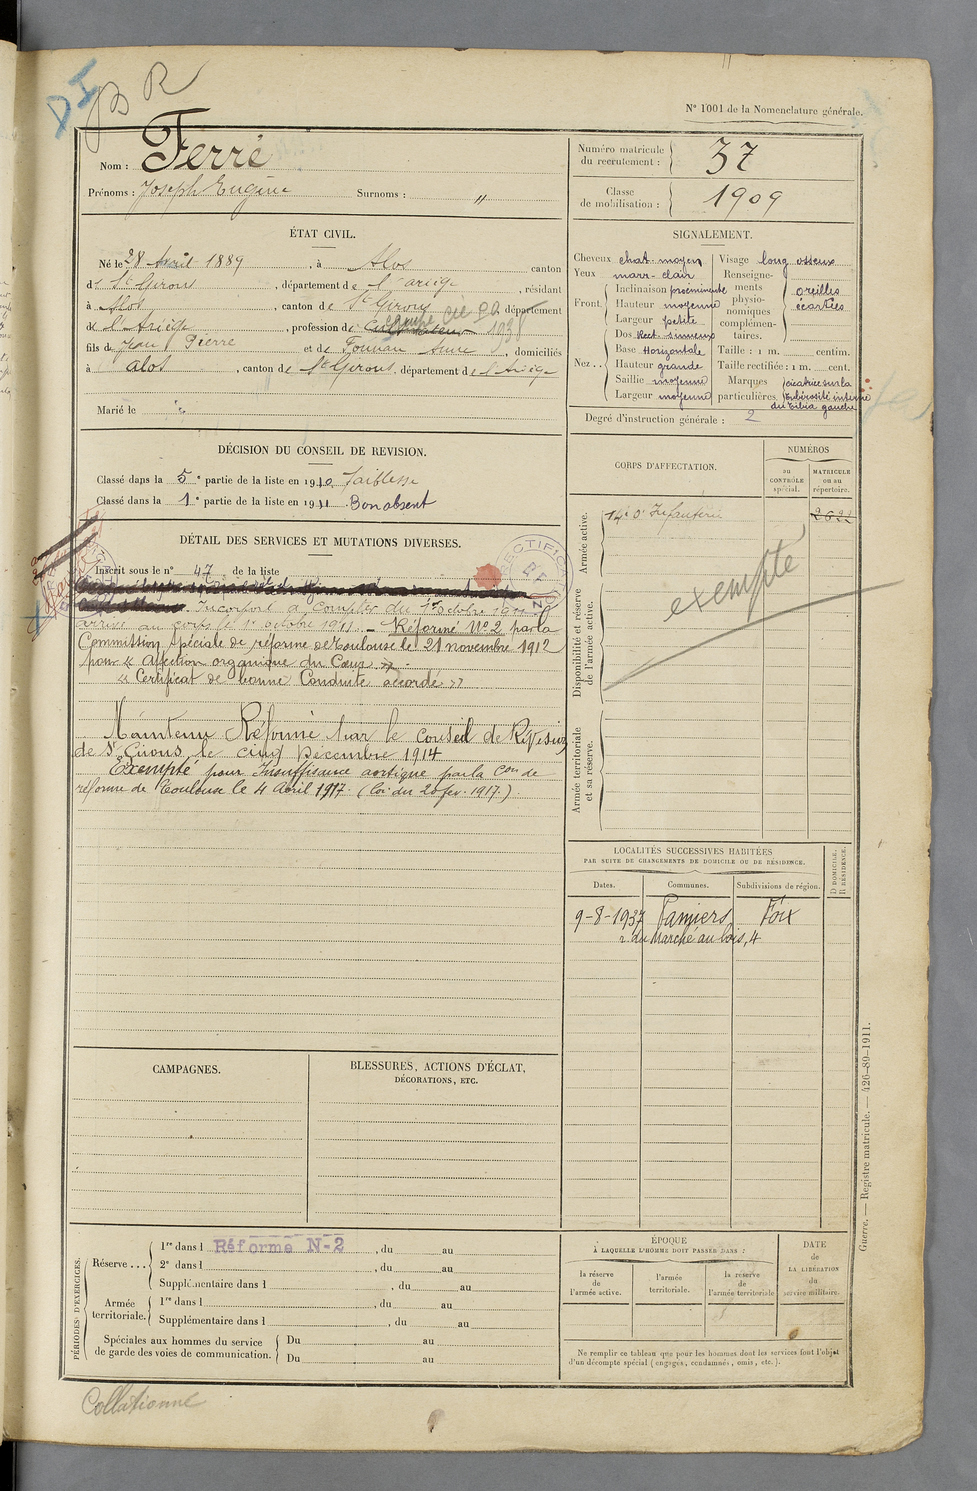 DI
BR
N° 1001 de la Nomenclature générale.
Nom : Ferré
Prénoms : Joseph Eugène Surnoms : "
Numéro matricule du recrutement : 37
Classe de mobilisation : 1909
ÉTAT CIVIL.
Né le 28 Avril 1889, à Alos canton
de St Girons, département de l'Ariège, résidant
à Alos, canton de St Girons, département
de l'Ariège, profession de Cultivateur 1938
fils de Jean Pierre et de Anne, domiciliés
à Alos, canton de St Girons, département de l'Ariège
Marié le
SIGNALEMENT.
Cheveux chat-moyen
Yeux marr-clair
Front. Inclinaison proéminente
Hauteur moyenne
Largeur petite
Nez. Dos Rect-sinueux
Base Horizontale
Hauteur grande
Saillie moyenne
Largeur moyenne
Visage long osseux
Renseignements physionomiques complémentaires. oreilles écartées
Taille : 1 m. centim.
Taille rectifiée : 1 m. cent.
Marques particulières. cicatrice sur la tubérosité interne du tibia gauche
Degré d'instruction générale : 2
DÉCISION DU CONSEIL DE REVISION.
Classé dans la 5e partie de la liste en 1910 faiblesse
Classé dans la 1e partie de la liste en 1911 Bon absent
DÉTAIL DES SERVICES ET MUTATIONS DIVERSES.
Inscrit sous le n° 47 de la liste
Incorporé à compter du 1er octobre 1911
arrivé au corps le 1er octobre 1911. – Réformé N° 2 par la
Commission Spéciale de réforme de Toulouse le 21 novembre 1912
pour « Affection organique du Cœur »
« Certificat de bonne Conduite accordé »
Maintenu Réformé par le conseil de Révision
de St Girons, le cinq Décembre 1914
Exempté pour Insuffisance aortique par la Con de
réforme de Toulouse le 4 Avril 1917. (loi du 20 fev. 1917.)
CORPS D'AFFECTATION.
NUMÉROS
au CONTRÔLE spécial.
MATRICULE ou au répertoire.
Armée active.
14e d'Infanterie 2622
Disponibilité et réserve de l'armée active.
exempté
Armée territoriale et sa réserve.
LOCALITÉS SUCCESSIVES HABITÉES
PAR SUITE DE CHANGEMENTS DE DOMICILE OU DE RÉSIDENCE.
Dates. Communes. Subdivisions de région. D DOMICILE. R RÉSIDENCE.
9-8-1937 Pamiers Foix
r. du Marché au bois, 4
CAMPAGNES.
BLESSURES, ACTIONS D'ÉCLAT,
DÉCORATIONS, ETC.
PÉRIODES D'EXERCICES.
Réserve . . . 1re dans l Réforme N-2, du au
2e dans l , du au
Supplémentaire dans l , du au
Armée territoriale. 1re dans l , du au
Supplémentaire dans l , du au
Spéciales aux hommes du service de garde des voies de communication. Du au
Du au
ÉPOQUE
À LAQUELLE L'HOMME DOIT PASSER DANS :
la réserve de l'armée active.
l'armée territoriale.
la réserve de l'armée territoriale
DATE de LA LIBÉRATION du service militaire.
Ne remplir ce tableau que pour les hommes dont les services font l'objet
d'un décompte spécial (engagés, condamnés, omis, etc.).
Guerre. — Registre matricule. — 426-89-1911.
Collationné